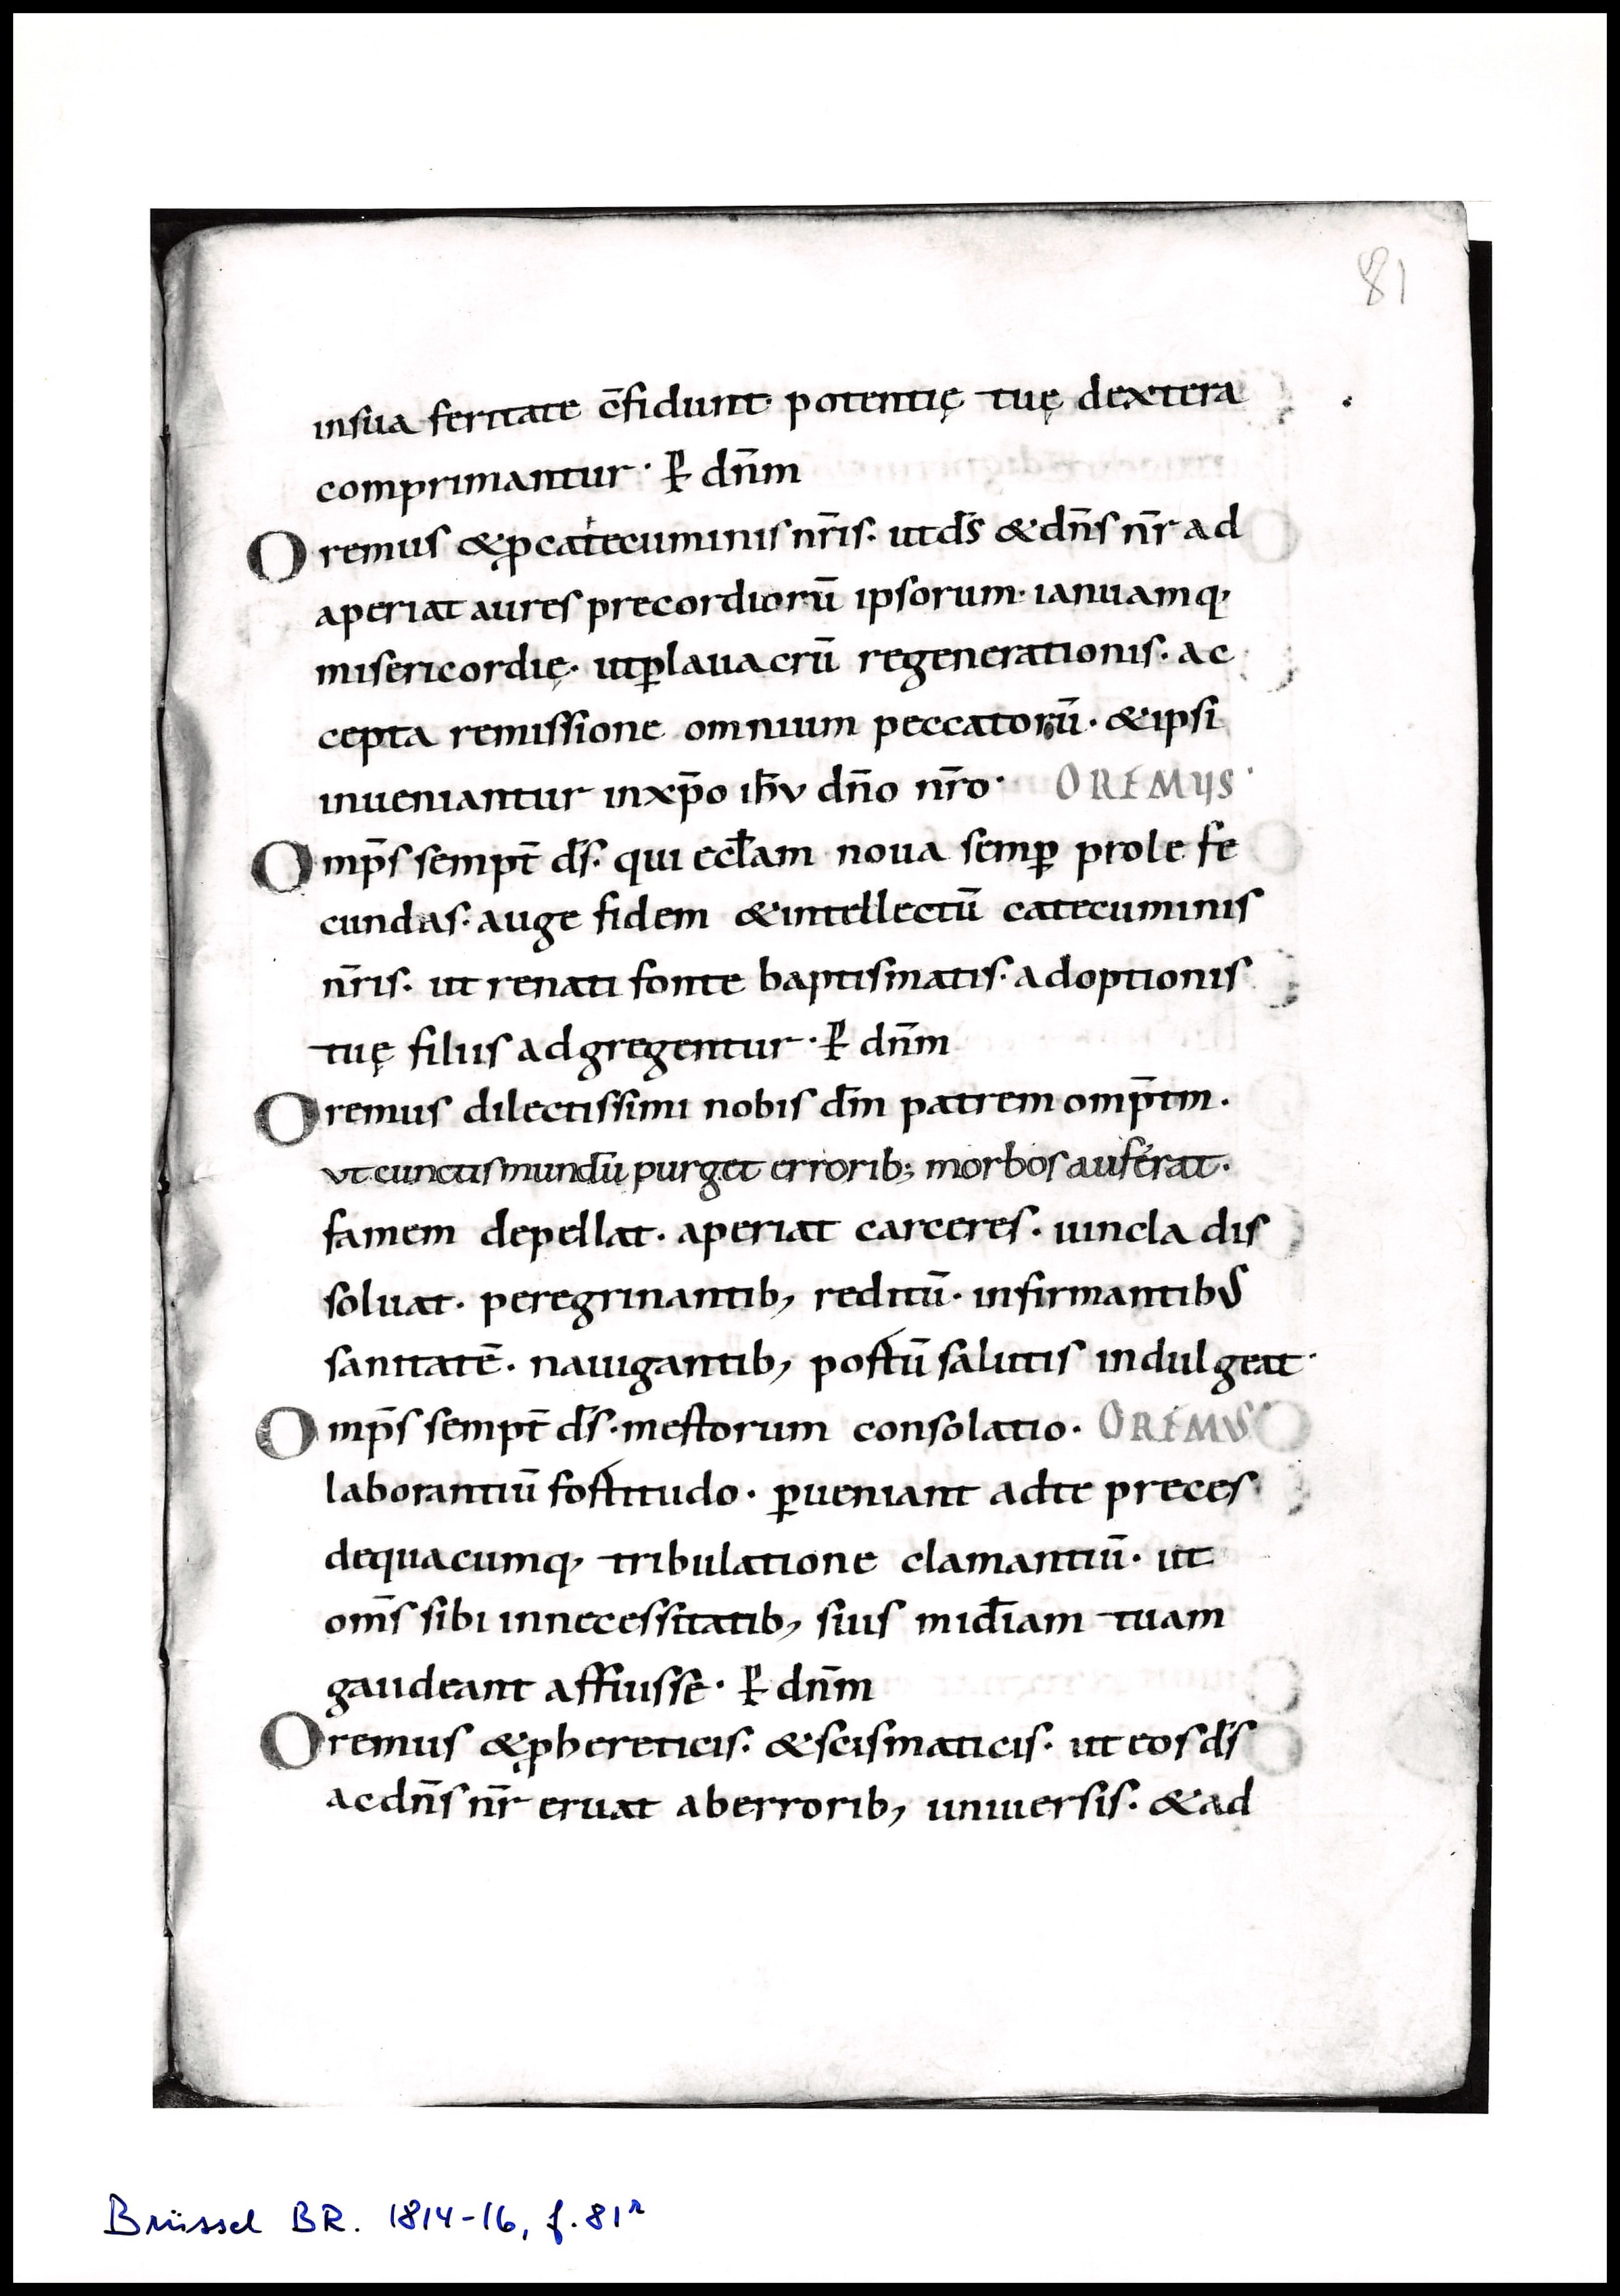 81
insua feritate c̄fidunt· potentię tuę dextera
comprimantur · P̲ dn̄m
Oremus & ꝓ catecuminis nr̄is· ut ds̄ & dn̄s nr̄ ad
aperiat aures precordiorū ipsorum· ianuamq,
misericordię· ut ꝑ lauacrū regenerationis· ac
cepta remissione omnium peccatorū· & ipsi
inueniantur in xp̄o ih̄v dn̄o nr̄o· OREMUS·
Omp̄s sempt̄ ds̄· qui eccl̄am noua semꝑ prole fe
cundas· auge fidem & intellectū catecuminis
nr̄is· ut renati fonte baptismatis· adoptionis
tuę filiis adgregentur · P̲ dn̄m
Oremus dilectissimi nobis dm̄ patrem omp̄tm·
vt cunctis mundū purget errorib; morbos auferat·
famem depellat· aperiat carceres· uincla dis
soluat· peregrinantib, reditū· infirmantibus
sanitatē· nauigantib, portū salutis indulgeat·
Omp̄s sempt̄ ds̄· mestorum consolatio· OREMVS·
laborantiū fortitudo· ꝑueniant ad te preces
de quacumq, tribulatione clamantiū· ut
om̄s sibi in necessitatib, suis mid̄iam tuam
gaudeant affuisse· P̲ dn̄m
Oremus & ꝓ hereticis· & scismaticis· ut eos ds̄
ac dn̄s nr̄ eruat ab errorib, uniuersis· & ad
Brüssel BR. 1814-16, f. 81ʳ